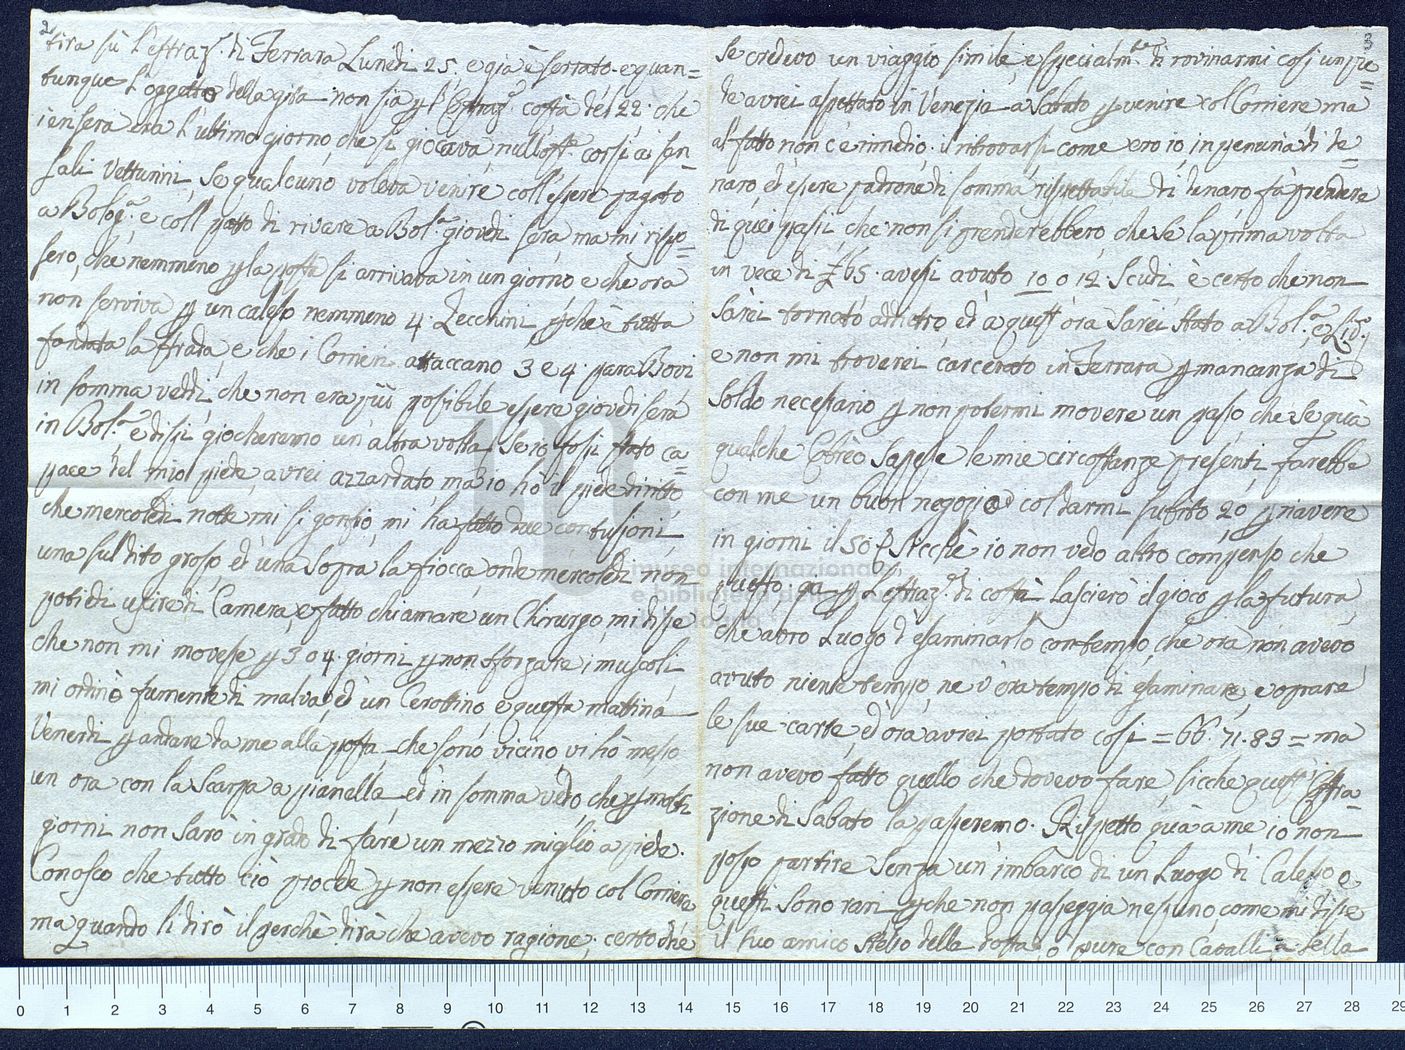 2
tira sù l'estraz.e di Ferrara Lunedì 25. e già è serrato. e quan=
tunque l'oggetto della gita non sia p l'Estraz.e costà del 22. che
ieri sera era l'ultimo giorno, che si giocava, null'ost.e corsi ai sen=
sali Vetturini, se qualcuno voleva venire coll'essere pagato
a Bolog.a e coll patto di rivare a Bol.a giovedì sera, ma mi rispo=
sero, che nemmeno p la posta si arrivava in un giorno e che ora
non serviva p un calesso nemmeno 4. Zecchini, p che è tutta
fondata la strada, e che i Corrieri attaccano 3 e 4. para Bovi
in somma veddi, che non era più possibile essere giovedì sera
in Bol.a e dissi giocheremo un altra volta. Se io fossi stato ca=
pace del mio piede, avrei azzardato, ma io hò il piede diritto
che mercoledì notte mi si gonfiò, mi ha fatto due contusioni
una sul dito grosso ed una sopra la fiocca, onde mercoledì non
potiedi uscire di Camera, e fatto chiamare un Chirurgo, mi disse
che non mi movesse p 3 o 4. giorni p non sforzare i muscoli
mi ordinò fumente di malva, ed un Cerottino, e questa mattina
Venerdì p andare da me alla posta, che sono vicino, vi hò messo
un ora con la scarpa a pianella, ed in somma vedo, che p molti
giorni non sarò in grado di fare un mezzo miglio a piede.
Conosco che tutto ciò procede p non essere venuto col Corriere
ma quando li dirò il perchè dirà che avevo ragione; certo che
3
se credevo un viaggio simile, e specialm.te di rovinarmi così un pie=
de avrei aspettato in Venezia a Sabato p venire col Corriere ma
al fatto non c'è rimedio. il ritrovarsi come ero io, in penuria di de=
naro, ed essere padrone di somma rispettabile di denaro fà prendere
di quei passi, che non si prenderebbero, che se la prima volta
in vece di £ 65. avessi avuto 10 o 12 Scudi è certo che non
sarei tornato addietro, ed a quest'ora sarei stato a Bol.a, e Liv.o
e non mi troverei carcerato in Ferrara p mancanza di
soldo necessario p non potermi movere un passo che se quà
qualche Ebreo sapesse le mie circostanze presenti, farebbe
con me un buon negozio col darmi subito 20 p riavere
in giorni il 50 p Sicchè io non vedo altro compenso che
questo, quì p l'estraz.e di costà lascierò il gioco p la futura
che avrò luogo d'esaminarlo con tempo, che ora non avevo
avuto niente tempo, ne v'era tempo di esaminare, e oprare
le sue carte, ed ora avrei portato così = 66. 71. 83 = ma
non avevo fatto quello che dovevo fare, sicche quest'Estra=
zione di Sabato la passeremo. Rispetto quà a me io non
posso partire senza un imbarco di un Luogo di Calesso e
questi sono rari, p che non passeggia nessuno, come mi disse
il suo amico stesso della posta, o pure con Cavalli a sella